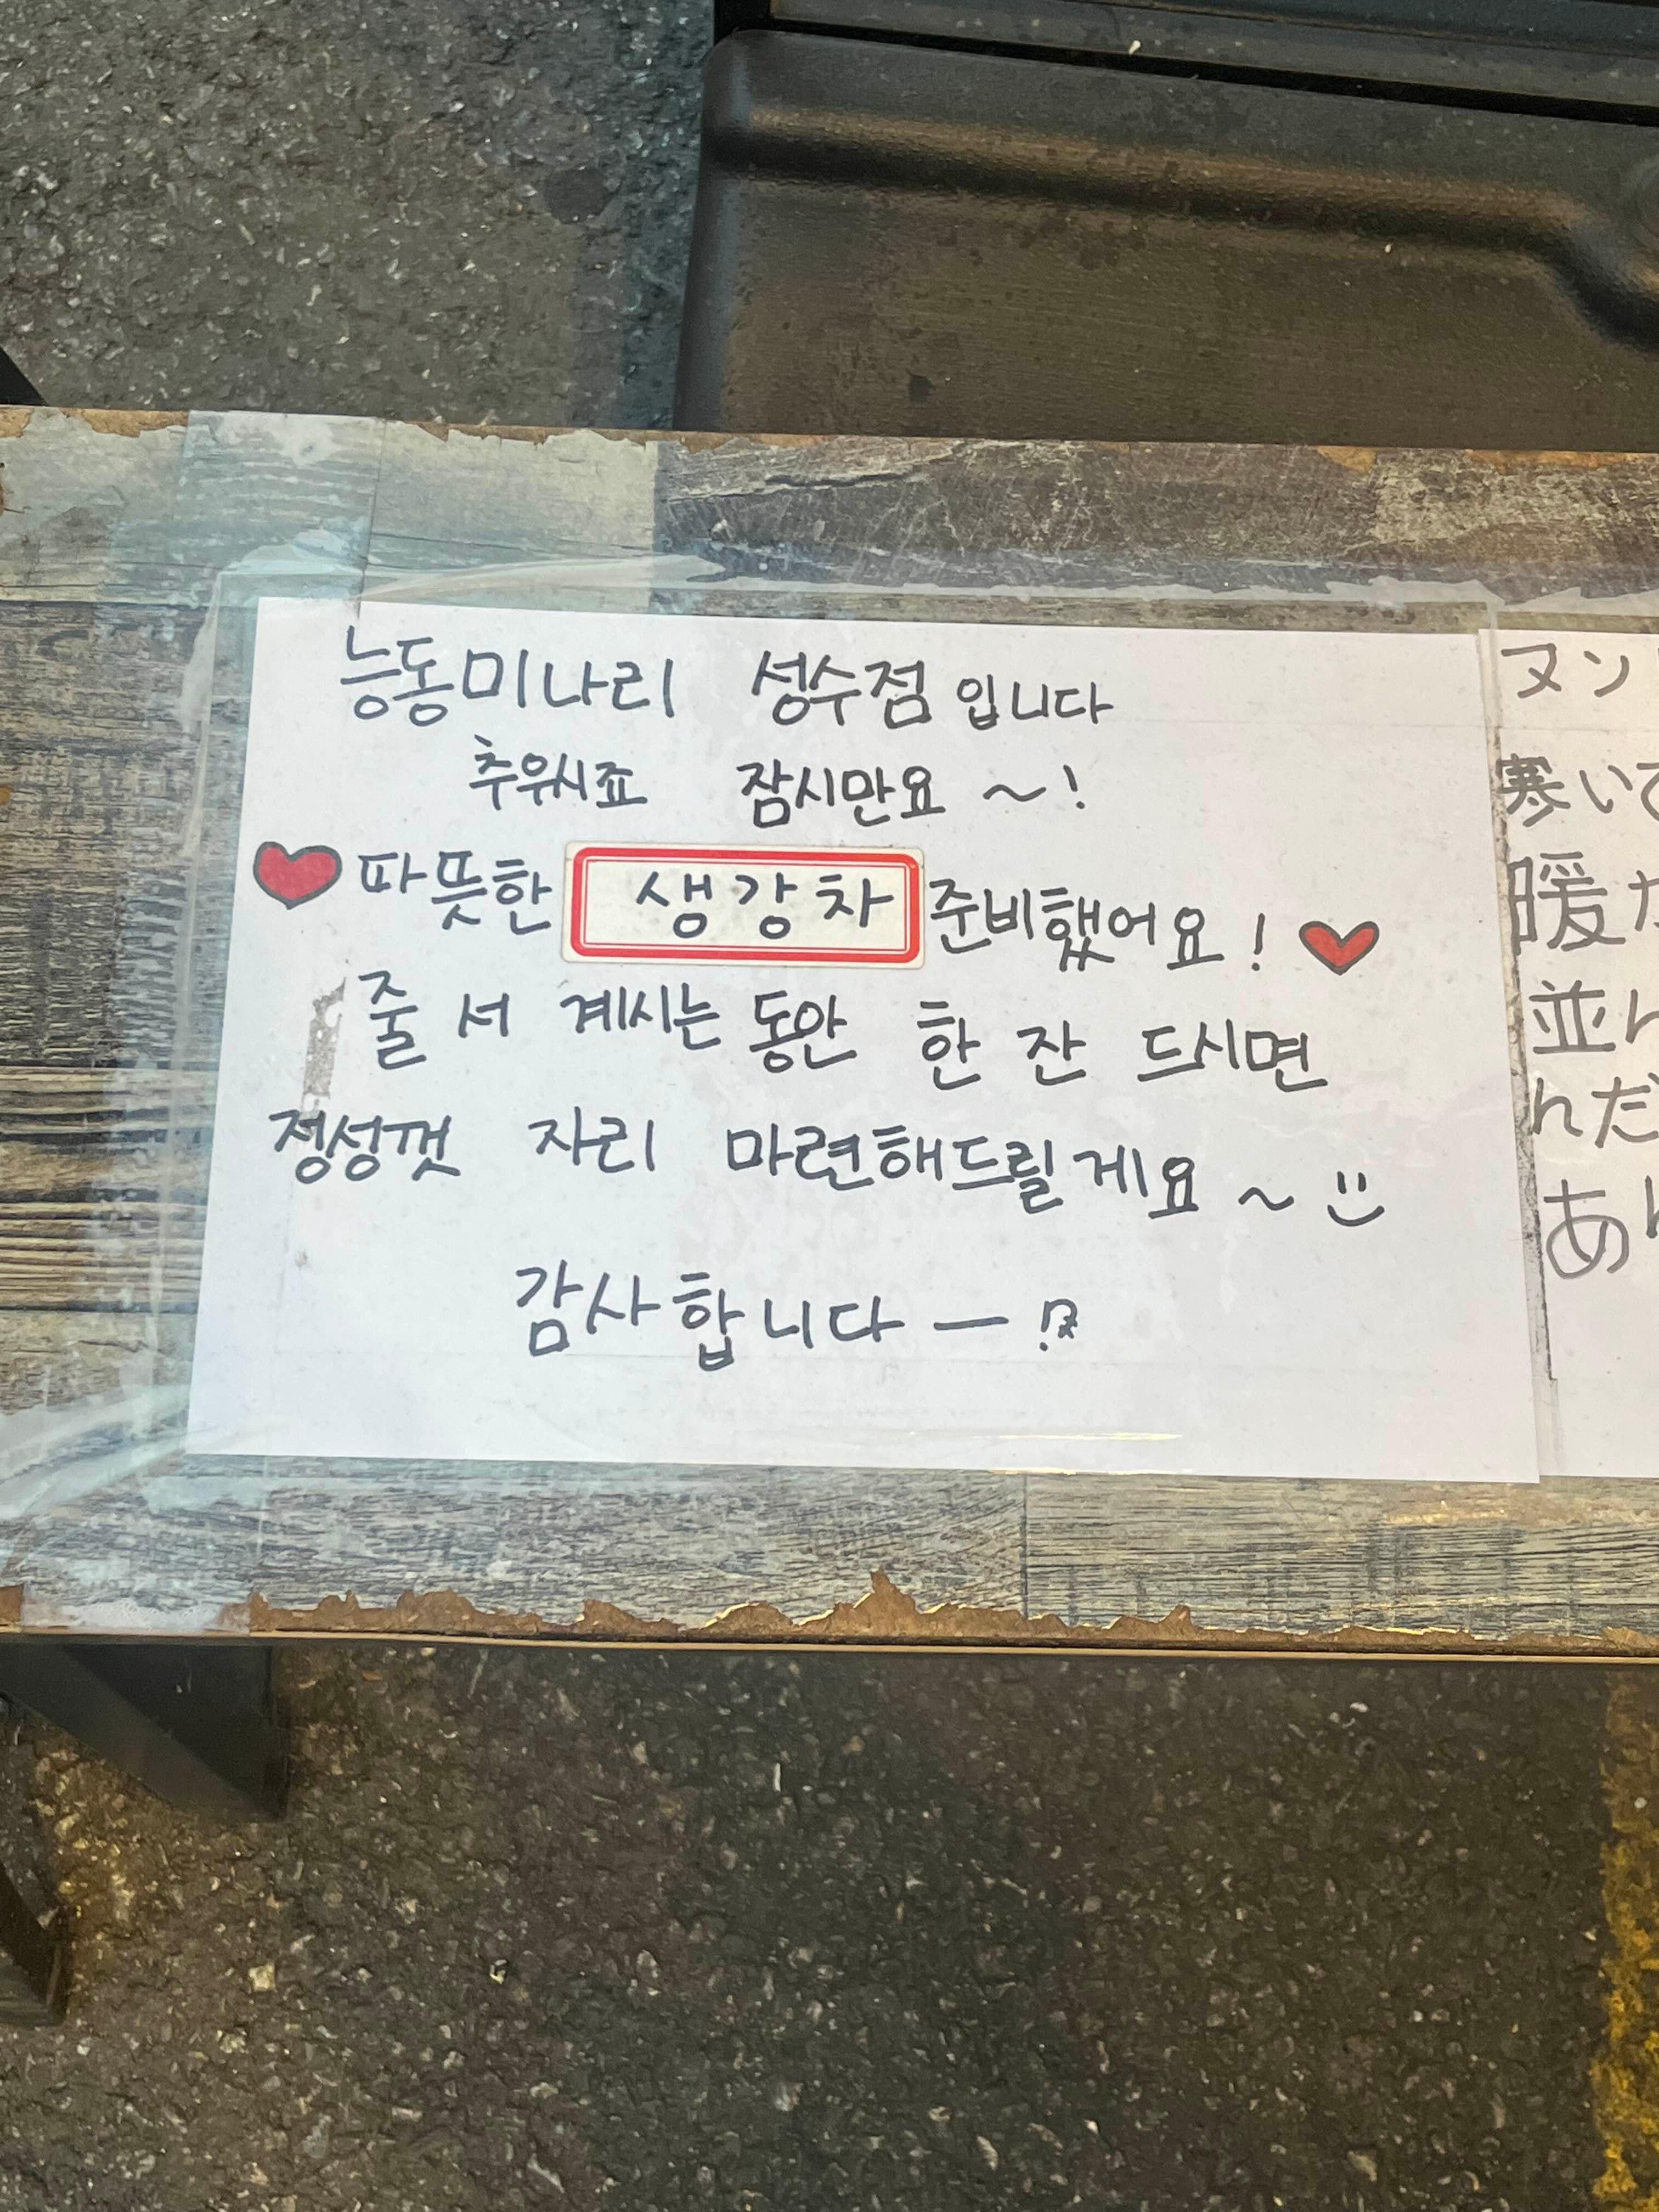 능동미나리 성수점입니다
추우시죠 잠시만요~!
♥ 따뜻한 생강차 준비했어요! ♥
줄 서 계시는 동안 한 잔 드시면
정성껏 자리 마련해드릴게요~ :)
감사합니다-!
ヌン
寒い
暖か
並ん
んだ
あ